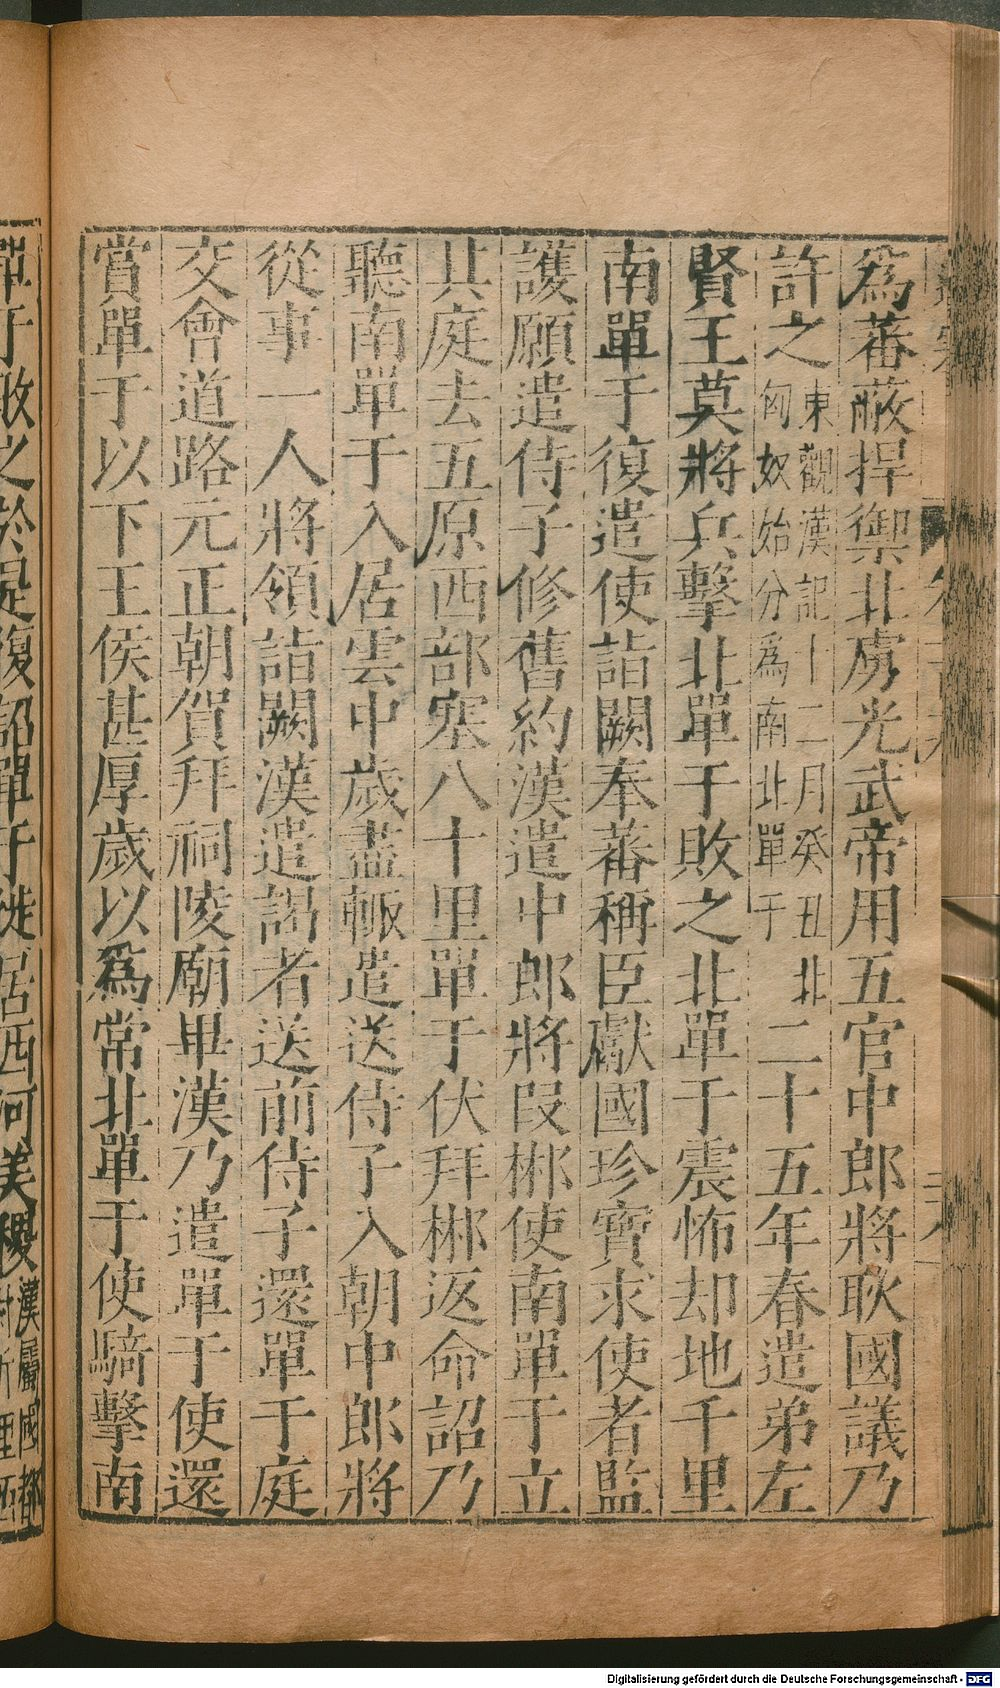 爲蕃蔽捍禦北虜光武帝用五官中郎將耿國議乃
許之東觀漢記十二月癸丑北匈奴始分爲南北單于二十五年春遣弟左
賢王莫將兵擊北單于敗之北單于震怖却地千里
南單于復遣使詣闕奉蕃稱臣獻國珍寶求使者監
護願遣侍子修舊約漢遣中郎將叚郴使南單于立
其庭去五原西部塞八十里單于伏拜郴返命詔乃
聽南單于入居雲中歲盡輙遣送侍子入朝中郎將
從事一人將領詣闕漢遣謁者送前侍子還單于庭
交會道路元正朝賀拜祠陵廟畢漢乃遣單于使還
賞單于以下王侯甚厚歲以爲常北單于使騎擊南
單于敗之於是復詔單于徙居西河美稷
漢屬國都
Digitalisierung gefördert durch die Deutsche Forschungsgemeinschaft - DFG